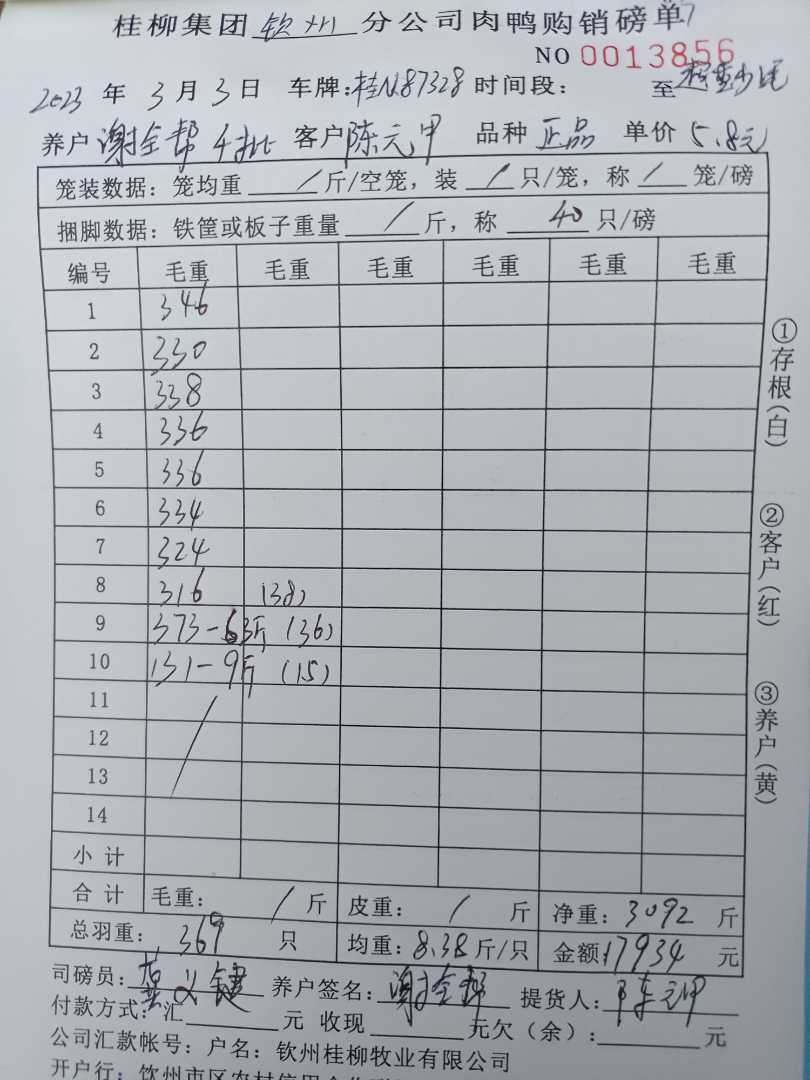 桂柳集团 钦州 分公司肉鸭购销磅单
NO 0013856
2023 年 3 月 3 日 车牌:桂N87328 时间段: 至
养户 谢全帮 4批 客户 陈元甲 品种 正品 单价 5.8元
笼装数据: 笼均重 / 斤/空笼, 装 / 只/笼, 称 / 笼/磅
捆脚数据: 铁筐或板子重量 / 斤, 称 40 只/磅
编号 毛重 毛重 毛重 毛重 毛重 毛重
1 346
2 330
3 338
4 336
5 336
6 334
7 324
8 316 (38)
9 373-63斤 (36)
10 131-9斤 (15)
11
12
13
14
小计
合计 毛重: / 斤 皮重: / 斤 净重: 3092 斤
总羽重: 369 只 均重: 8.38 斤/只 金额: 17934 元
司磅员: 黄义键 养户签名: 谢全帮 提货人: 陈元甲
付款方式: 汇 元 收现 元欠(余): 元
公司汇款帐号: 户名: 钦州桂柳牧业有限公司
开户行: 钦州市区农村信用合作
①存根(白)
②客户(红)
③养户(黄)